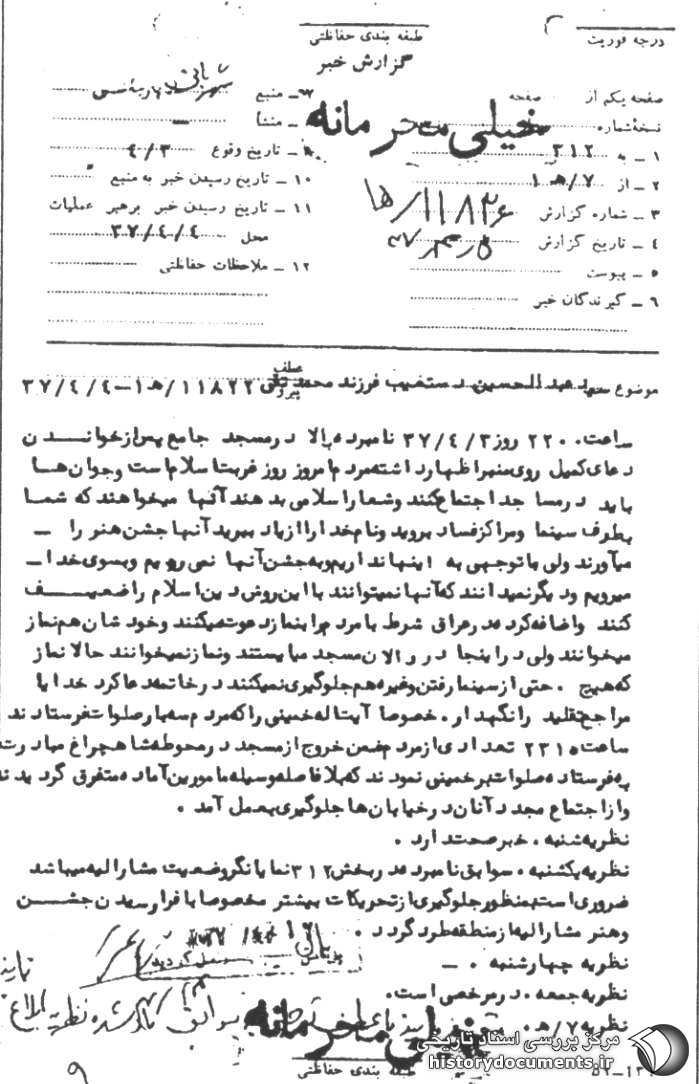 درجه فوریت
طبقه بندی حفاظتی
گزارش خبر
خیلی محرمانه
صفحه یکم از صفحه
نسخه شماره
۱ ـ به ۳۱۲
۲ ـ از ۷/هـ ۱
۳ ـ شماره گزارش ۱۱۸۲۶/هـ ۱
۴ ـ تاریخ گزارش
۵ ـ پیوست
۶ ـ گیرندگان خبر
۷ـ منبع شهربانی
ـ منشأ ــ
ـ تاریخ وقوع ٤/۳
۱۰ ـ تاریخ رسیدن خبر به منبع
۱۱ ـ تاریخ رسیدن خبر برهبر عملیات
محل ۳۷/٤/٤
۱۲ ـ ملاحظات حفاظتی
موضوع سید عبدالحسین دستغیب فرزند محمدتقی عطف پیرو ۱۱۸۲۲/هـ۱-۳۷/٤/٤
ساعت ۲۲۰۰ روز ۳۷/٤/۳ نامبرده بالا در مسجد جامع پس از خواندن
دعای کمیل روی منبر اظهار داشته مردم امروز روز غربت اسلام است و جوان ها
باید در مساجد اجتماع کنند و شعار اسلامی بدهند آنها میخواهند که شما
بطرف سینما و مراکز فساد بروید و نام خدا را از یاد ببرید آنها جشن هنر را ـ
میآورند ولی ما توجهی به اینها نداریم و به جشن آنها نمی رویم و بسوی خدا ـ
میرویم و دیگر نمیدانند که آنها نمیتوانند با این روش دین اسلام را ضعیف
کنند و اضافه کرد در عراق شرطی با مردم را بنماز دعوت میکنند و خودشان هم نماز
میخوانند ولی در اینجا در دالان مسجد میایستند و نماز نمیخوانند حالا نماز
که هیچ . حتی از سینما رفتن و غیره هم جلوگیری نمیکنند در خاتمه دعا کرد خدایا
مراجع تقلید را نگهدار . خصوصا آیت اله خمینی را که مردم سه بار صلوات فرستادند
ساعت ۲۳۱۵ تعدادی از مردم ضمن خروج از مسجد در محوطه شاهچراغ مبادرت
به فرستادن صلوات بر خمینی نمودند که بلافاصله وسیله مامورین آماده متفرق گردیدند
و از اجتماع مجدد آنان در خیابان ها جلوگیری بعمل آمد .
نظریه شنبه . خبر صحت دارد .
نظریه یکشنبه . سوابق نامبرده در بخش ۳۱۲ نمایانگر وضعیت مشارالیه میباشد
ضروری است بمنظور جلوگیری از تحریکات بیشتر مخصوصا با فرا رسیدن جشن
و هنر مشارالیه از منطقه طرد گردد .
نظریه چهارشنبه . ــ
نظریه جمعه . در مرخصی است .
نظریه ۷/هـ .
خیلی محرمانه
طبقه بندی حفاظتی
مرکز بررسی اسناد تاریخی
historydocuments.ir